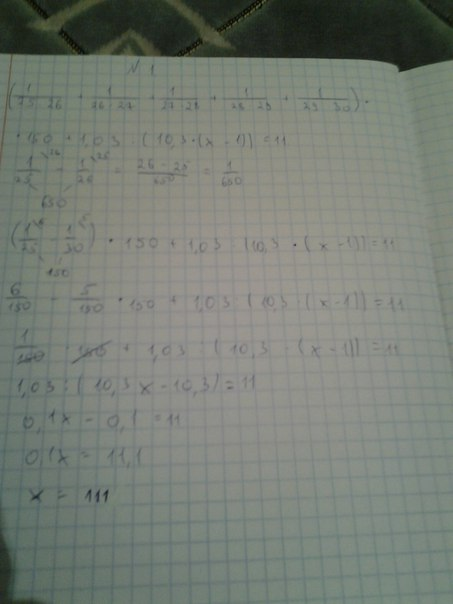 N 1
(1/25·26 + 1/26·27 + 1/27·28 + 1/28·29 + 1/29·30) ·
· 150 + 1,03 : (10,3 · (x - 1)) = 11
1/25 - 1/26 = 26 - 25/650 = 1/650
650
(1/25 - 1/30) · 150 + 1,03 : (10,3 · (x - 1)) = 11
150
6/150 - 5/150 · 150 + 1,03 : (10,3 · (x - 1)) = 11
1/150 · 150 + 1,03 : (10,3 · (x - 1)) = 11
1,03 : (10,3x - 10,3) = 11
0,1x - 0,1 = 11
0,1x = 11,1
x = 111